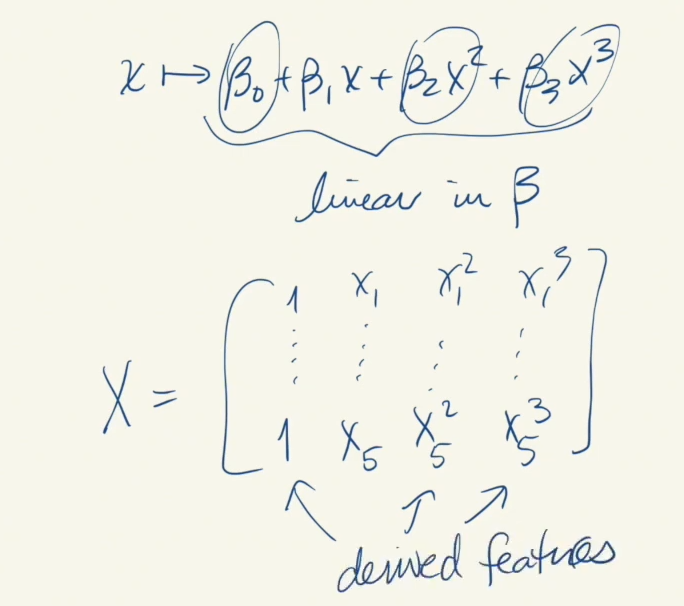 x ↦ β₀ + β₁x + β₂x² + β₃x³
linear in β
1 x₁ x₁² x₁³
X =
⋮ ⋮ ⋮ ⋮
1 x₅ x₅² x₅³
derived features